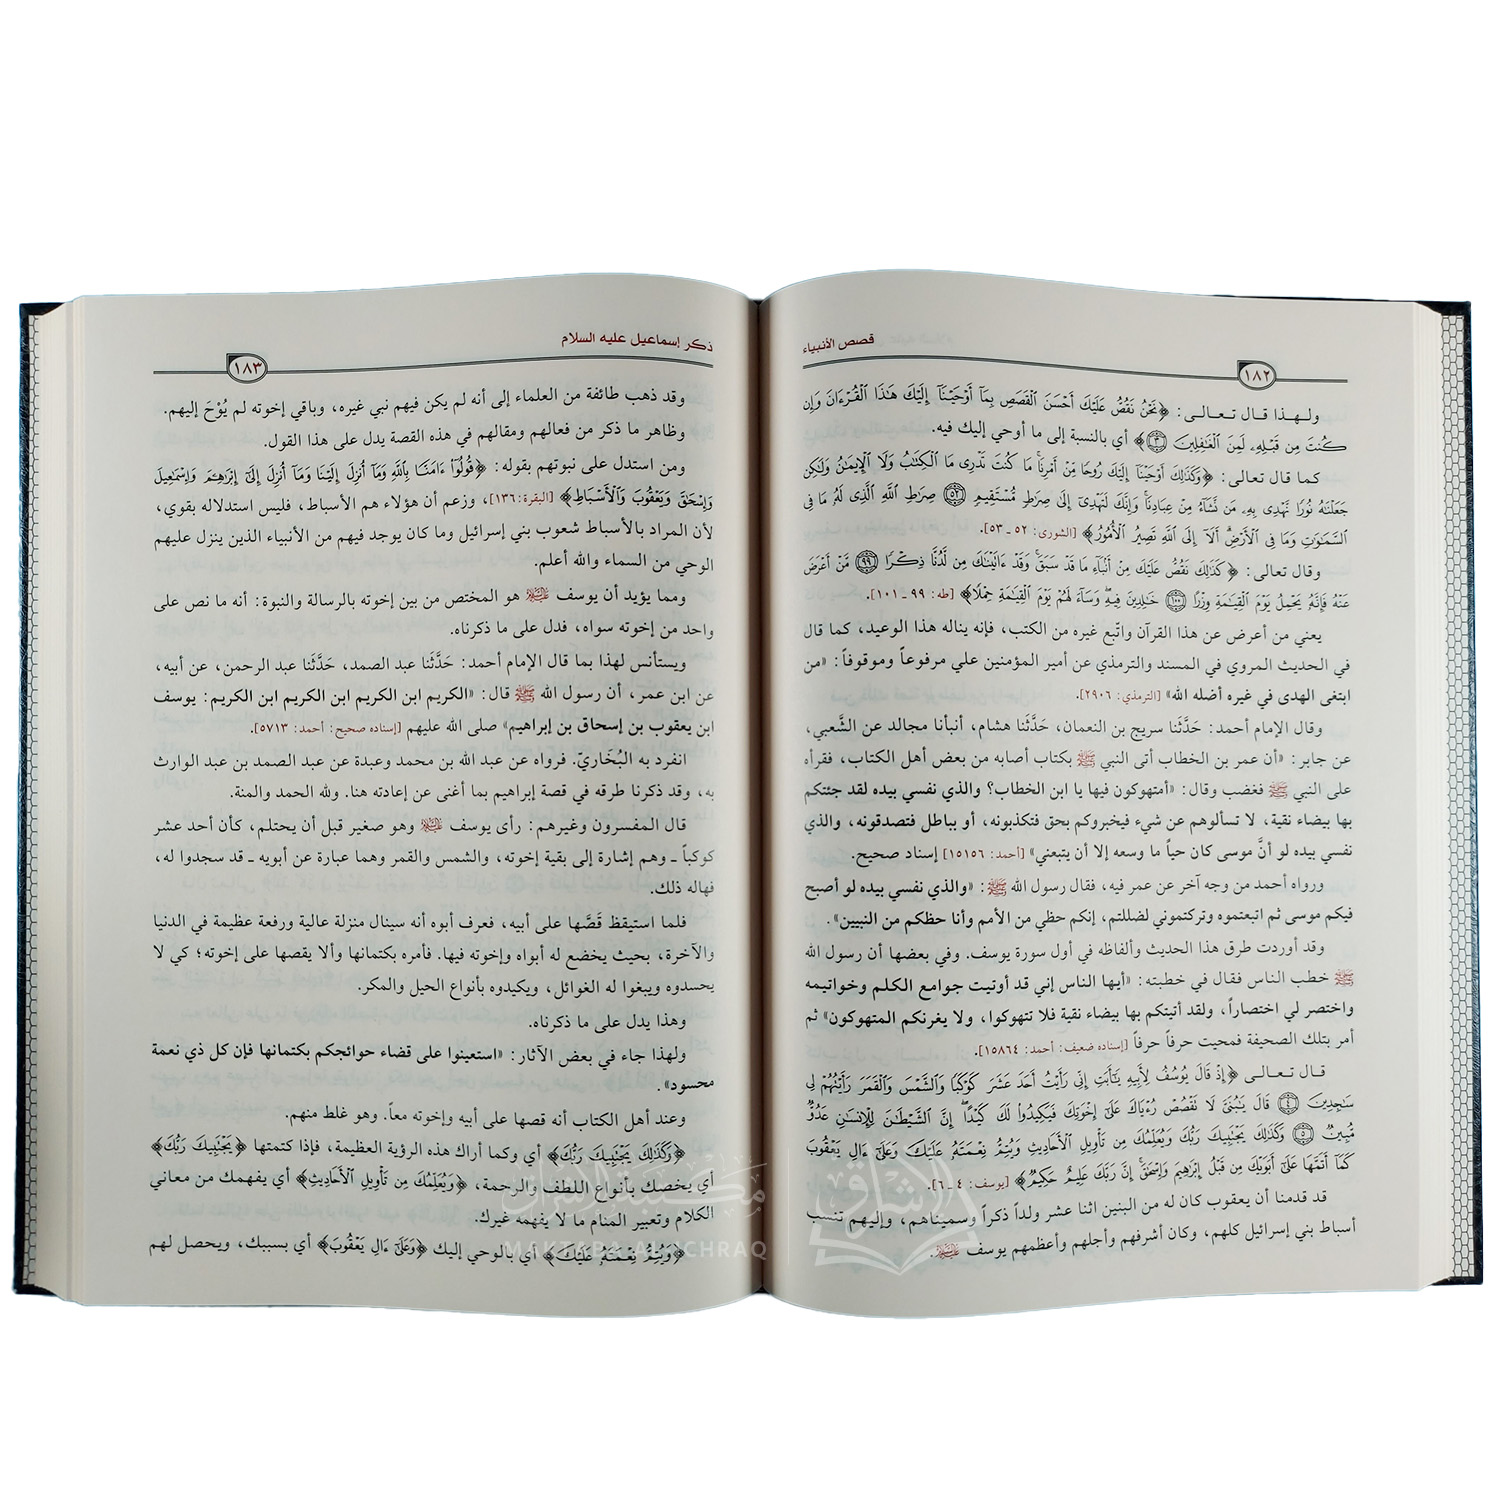 قصص الأنبياء
١٨٢
ولهذا قال تعالى: ﴿نَحْنُ نَقُصُّ عَلَيْكَ أَحْسَنَ ٱلْقَصَصِ بِمَآ أَوْحَيْنَآ إِلَيْكَ هَٰذَا ٱلْقُرْءَانَ وَإِن
كُنتَ مِن قَبْلِهِۦ لَمِنَ ٱلْغَٰفِلِينَ ٣﴾ أي بالنسبة إلى ما أوحي إليك فيه.
كما قال تعالى: ﴿وَكَذَٰلِكَ أَوْحَيْنَآ إِلَيْكَ رُوحًا مِّنْ أَمْرِنَا مَا كُنتَ تَدْرِى مَا ٱلْكِتَٰبُ وَلَا ٱلْإِيمَٰنُ وَلَٰكِن
جَعَلْنَٰهُ نُورًا نَّهْدِى بِهِۦ مَن نَّشَآءُ مِنْ عِبَادِنَا وَإِنَّكَ لَتَهْدِىٓ إِلَىٰ صِرَٰطٍ مُّسْتَقِيمٍ ٥٢ صِرَٰطِ ٱللَّهِ ٱلَّذِى لَهُۥ مَا فِى
ٱلسَّمَٰوَٰتِ وَمَا فِى ٱلْأَرْضِ أَلَآ إِلَى ٱللَّهِ تَصِيرُ ٱلْأُمُورُ﴾ [الشورى: ٥٢ ـ ٥٣].
وقال تعالى: ﴿كَذَٰلِكَ نَقُصُّ عَلَيْكَ مِنْ أَنۢبَآءِ مَا قَدْ سَبَقَ وَقَدْ ءَاتَيْنَٰكَ مِن لَّدُنَّا ذِكْرًا ٩٩ مَّنْ أَعْرَضَ
عَنْهُ فَإِنَّهُۥ يَحْمِلُ يَوْمَ ٱلْقِيَٰمَةِ وِزْرًا ١٠٠ خَٰلِدِينَ فِيهِ وَسَآءَ لَهُمْ يَوْمَ ٱلْقِيَٰمَةِ حِمْلًا﴾ [طه: ٩٩ ـ ١٠١].
يعني من أعرض عن هذا القرآن واتّبع غيره من الكتب، فإنه يناله هذا الوعيد، كما قال
في الحديث المروي في المسند والترمذي عن أمير المؤمنين علي مرفوعاً وموقوفاً: «من
ابتغى الهدى في غيره أضله الله» [الترمذي: ٢٩٠٦].
وقال الإمام أحمد: حَدَّثَنا سريج بن النعمان، حَدَّثَنا هشام، أنبأنا مجالد عن الشَّعبي،
عن جابر: «أن عمر بن الخطاب أتى النبي ﷺ بكتاب أصابه من بعض أهل الكتاب، فقرأه
على النبي ﷺ فغضب وقال: «أمتهوكون فيها يا ابن الخطاب؟ والذي نفسي بيده لقد جئتكم
بها بيضاء نقية، لا تسألوهم عن شيء فيخبروكم بحق فتكذبونه، أو بباطل فتصدقونه، والذي
نفسي بيده لو أنَّ موسى كان حياً ما وسعه إلا أن يتبعني» [أحمد: ١٥١٥٦] إسناد صحيح.
ورواه أحمد من وجه آخر عن عمر فيه، فقال رسول الله ﷺ: «والذي نفسي بيده لو أصبح
فيكم موسى ثم اتبعتموه وتركتموني لضللتم، إنكم حظي من الأمم وأنا حظكم من النبيين».
وقد أوردت طرق هذا الحديث وألفاظه في أول سورة يوسف. وفي بعضها أن رسول الله
ﷺ خطب الناس فقال في خطبته: «أيها الناس إني قد أوتيت جوامع الكلم وخواتيمه
واختصر لي اختصاراً، ولقد أتيتكم بها بيضاء نقية فلا تتهوكوا، ولا يغرنكم المتهوكون» ثم
أمر بتلك الصحيفة فمحيت حرفاً حرفاً [إسناده ضعيف: أحمد: ١٥٨٦٤].
قال تعالى ﴿إِذْ قَالَ يُوسُفُ لِأَبِيهِ يَٰٓأَبَتِ إِنِّى رَأَيْتُ أَحَدَ عَشَرَ كَوْكَبًا وَٱلشَّمْسَ وَٱلْقَمَرَ رَأَيْتُهُمْ لِى
سَٰجِدِينَ ٤ قَالَ يَٰبُنَىَّ لَا تَقْصُصْ رُءْيَاكَ عَلَىٰٓ إِخْوَتِكَ فَيَكِيدُوا۟ لَكَ كَيْدًا إِنَّ ٱلشَّيْطَٰنَ لِلْإِنسَٰنِ عَدُوٌّ
مُّبِينٌ ٥ وَكَذَٰلِكَ يَجْتَبِيكَ رَبُّكَ وَيُعَلِّمُكَ مِن تَأْوِيلِ ٱلْأَحَادِيثِ وَيُتِمُّ نِعْمَتَهُۥ عَلَيْكَ وَعَلَىٰٓ ءَالِ يَعْقُوبَ
كَمَآ أَتَمَّهَا عَلَىٰٓ أَبَوَيْكَ مِن قَبْلُ إِبْرَٰهِيمَ وَإِسْحَٰقَ إِنَّ رَبَّكَ عَلِيمٌ حَكِيمٌ﴾ [يوسف: ٤ ـ ٦].
قد قدمنا أن يعقوب كان له من البنين اثنا عشر ولداً ذكراً وسميناهم، وإليهم تنسب
أسباط بني إسرائيل كلهم، وكان أشرفهم وأجلهم وأعظمهم يوسف عليه السلام.
ذكر إسماعيل عليه السلام
١٨٣
وقد ذهب طائفة من العلماء إلى أنه لم يكن فيهم نبي غيره، وباقي إخوته لم يُوْحَ إليهم.
وظاهر ما ذكر من فعالهم ومقالهم في هذه القصة يدل على هذا القول.
ومن استدل على نبوتهم بقوله: ﴿قُولُوٓا۟ ءَامَنَّا بِٱللَّهِ وَمَآ أُنزِلَ إِلَيْنَا وَمَآ أُنزِلَ إِلَىٰٓ إِبْرَٰهِـۧمَ وَإِسْمَٰعِيلَ
وَإِسْحَٰقَ وَيَعْقُوبَ وَٱلْأَسْبَاطِ﴾ [البقرة: ١٣٦]، وزعم أن هؤلاء هم الأسباط، فليس استدلاله بقوي،
لأن المراد بالأسباط شعوب بني إسرائيل وما كان يوجد فيهم من الأنبياء الذين ينزل عليهم
الوحي من السماء والله أعلم.
ومما يؤيد أن يوسف عليه السلام هو المختص من بين إخوته بالرسالة والنبوة: أنه ما نص على
واحد من إخوته سواه، فدل على ما ذكرناه.
ويستأنس لهذا بما قال الإمام أحمد: حَدَّثَنا عبد الصمد، حَدَّثَنا عبد الرحمن، عن أبيه،
عن ابن عمر، أن رسول الله ﷺ قال: «الكريم ابن الكريم ابن الكريم ابن الكريم: يوسف
ابن يعقوب بن إسحاق بن إبراهيم» صلى الله عليهم [إسناده صحيح: أحمد: ٥٧١٣].
انفرد به البُخَاريّ. فرواه عن عبد الله بن محمد وعبدة عن عبد الصمد بن عبد الوارث
به، وقد ذكرنا طرقه في قصة إبراهيم بما أغنى عن إعادته هنا. ولله الحمد والمنة.
قال المفسرون وغيرهم: رأى يوسف عليه السلام وهو صغير قبل أن يحتلم، كأن أحد عشر
كوكباً ـ وهم إشارة إلى بقية إخوته، والشمس والقمر وهما عبارة عن أبويه ـ قد سجدوا له،
فهاله ذلك.
فلما استيقظ قَصَّها على أبيه، فعرف أبوه أنه سينال منزلة عالية ورفعة عظيمة في الدنيا
والآخرة، بحيث يخضع له أبواه وإخوته فيها. فأمره بكتمانها وألا يقصها على إخوته؛ كي لا
يحسدوه ويبغوا له الغوائل، ويكيدوه بأنواع الحيل والمكر.
وهذا يدل على ما ذكرناه.
ولهذا جاء في بعض الآثار: «استعينوا على قضاء حوائجكم بكتمانها فإن كل ذي نعمة
محسود».
وعند أهل الكتاب أنه قصها على أبيه وإخوته معاً. وهو غلط منهم.
﴿وَكَذَٰلِكَ يَجْتَبِيكَ رَبُّكَ﴾ أي وكما أراك هذه الرؤية العظيمة، فإذا كتمتها ﴿يَجْتَبِيكَ رَبُّكَ﴾
أي يخصك بأنواع اللطف والرحمة، ﴿وَيُعَلِّمُكَ مِن تَأْوِيلِ ٱلْأَحَادِيثِ﴾ أي يفهمك من معاني
الكلام وتعبير المنام ما لا يفهمه غيرك.
﴿وَيُتِمُّ نِعْمَتَهُۥ عَلَيْكَ﴾ أي بالوحي إليك ﴿وَعَلَىٰٓ ءَالِ يَعْقُوبَ﴾ أي بسببك، ويحصل لهم
مكتبة الإشراق
MAKTABA AL ICHRAQ